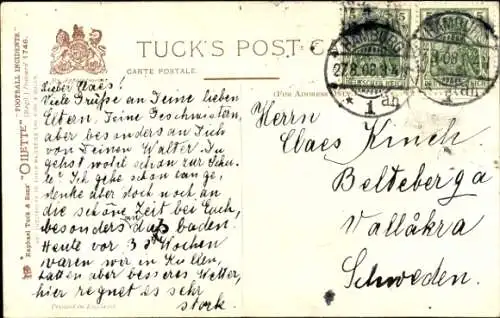 TUCK'S POST C
CARTE POSTALE.
(FOR ADDRESS ONLY)
Raphael Tuck & Sons' "OILETTE" "FOOTBALL INCIDENTS"
Lieber Claes!
Viele Grüße an Deine lieben
Eltern, Deine Geschwistern,
aber besonders an Dich
von Deinen Walter. Du
gehst wohl schon zur Schu-
le? Ich gehe schon lange,
denke aber doch noch an
die schöne Zeit bei Euch,
besonders an das baden.
Heute vor 3 Wochen
waren wir in Kullen,
hatten aber besseres Wetter,
hier regnet es sehr
stark.
Printed in England.
HAMBURG
27.8.09
* 1 ah
HAMBURG
* 1 ah
5
5
Herrn
Claes Kinch.
Belteberga
Vallåkra
Schweden.